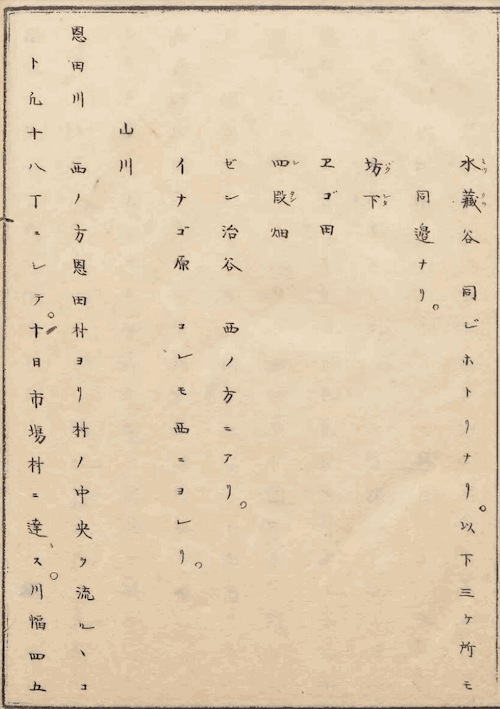 水蔵谷 同ジホトリナリ。以下三ケ所モ
同邉ナリ。
坊下
ヱゴ田
四段畑
ゼン治谷 西ノ方ニアリ。
イナゴ原 コレモ西ニヨレリ。
山川
恩田川 西ノ方恩田村ヨリ村ノ中央ヲ流ルヽコ
ト凢十八丁ニシテ。十日市場村ニ達ス。川幅四五